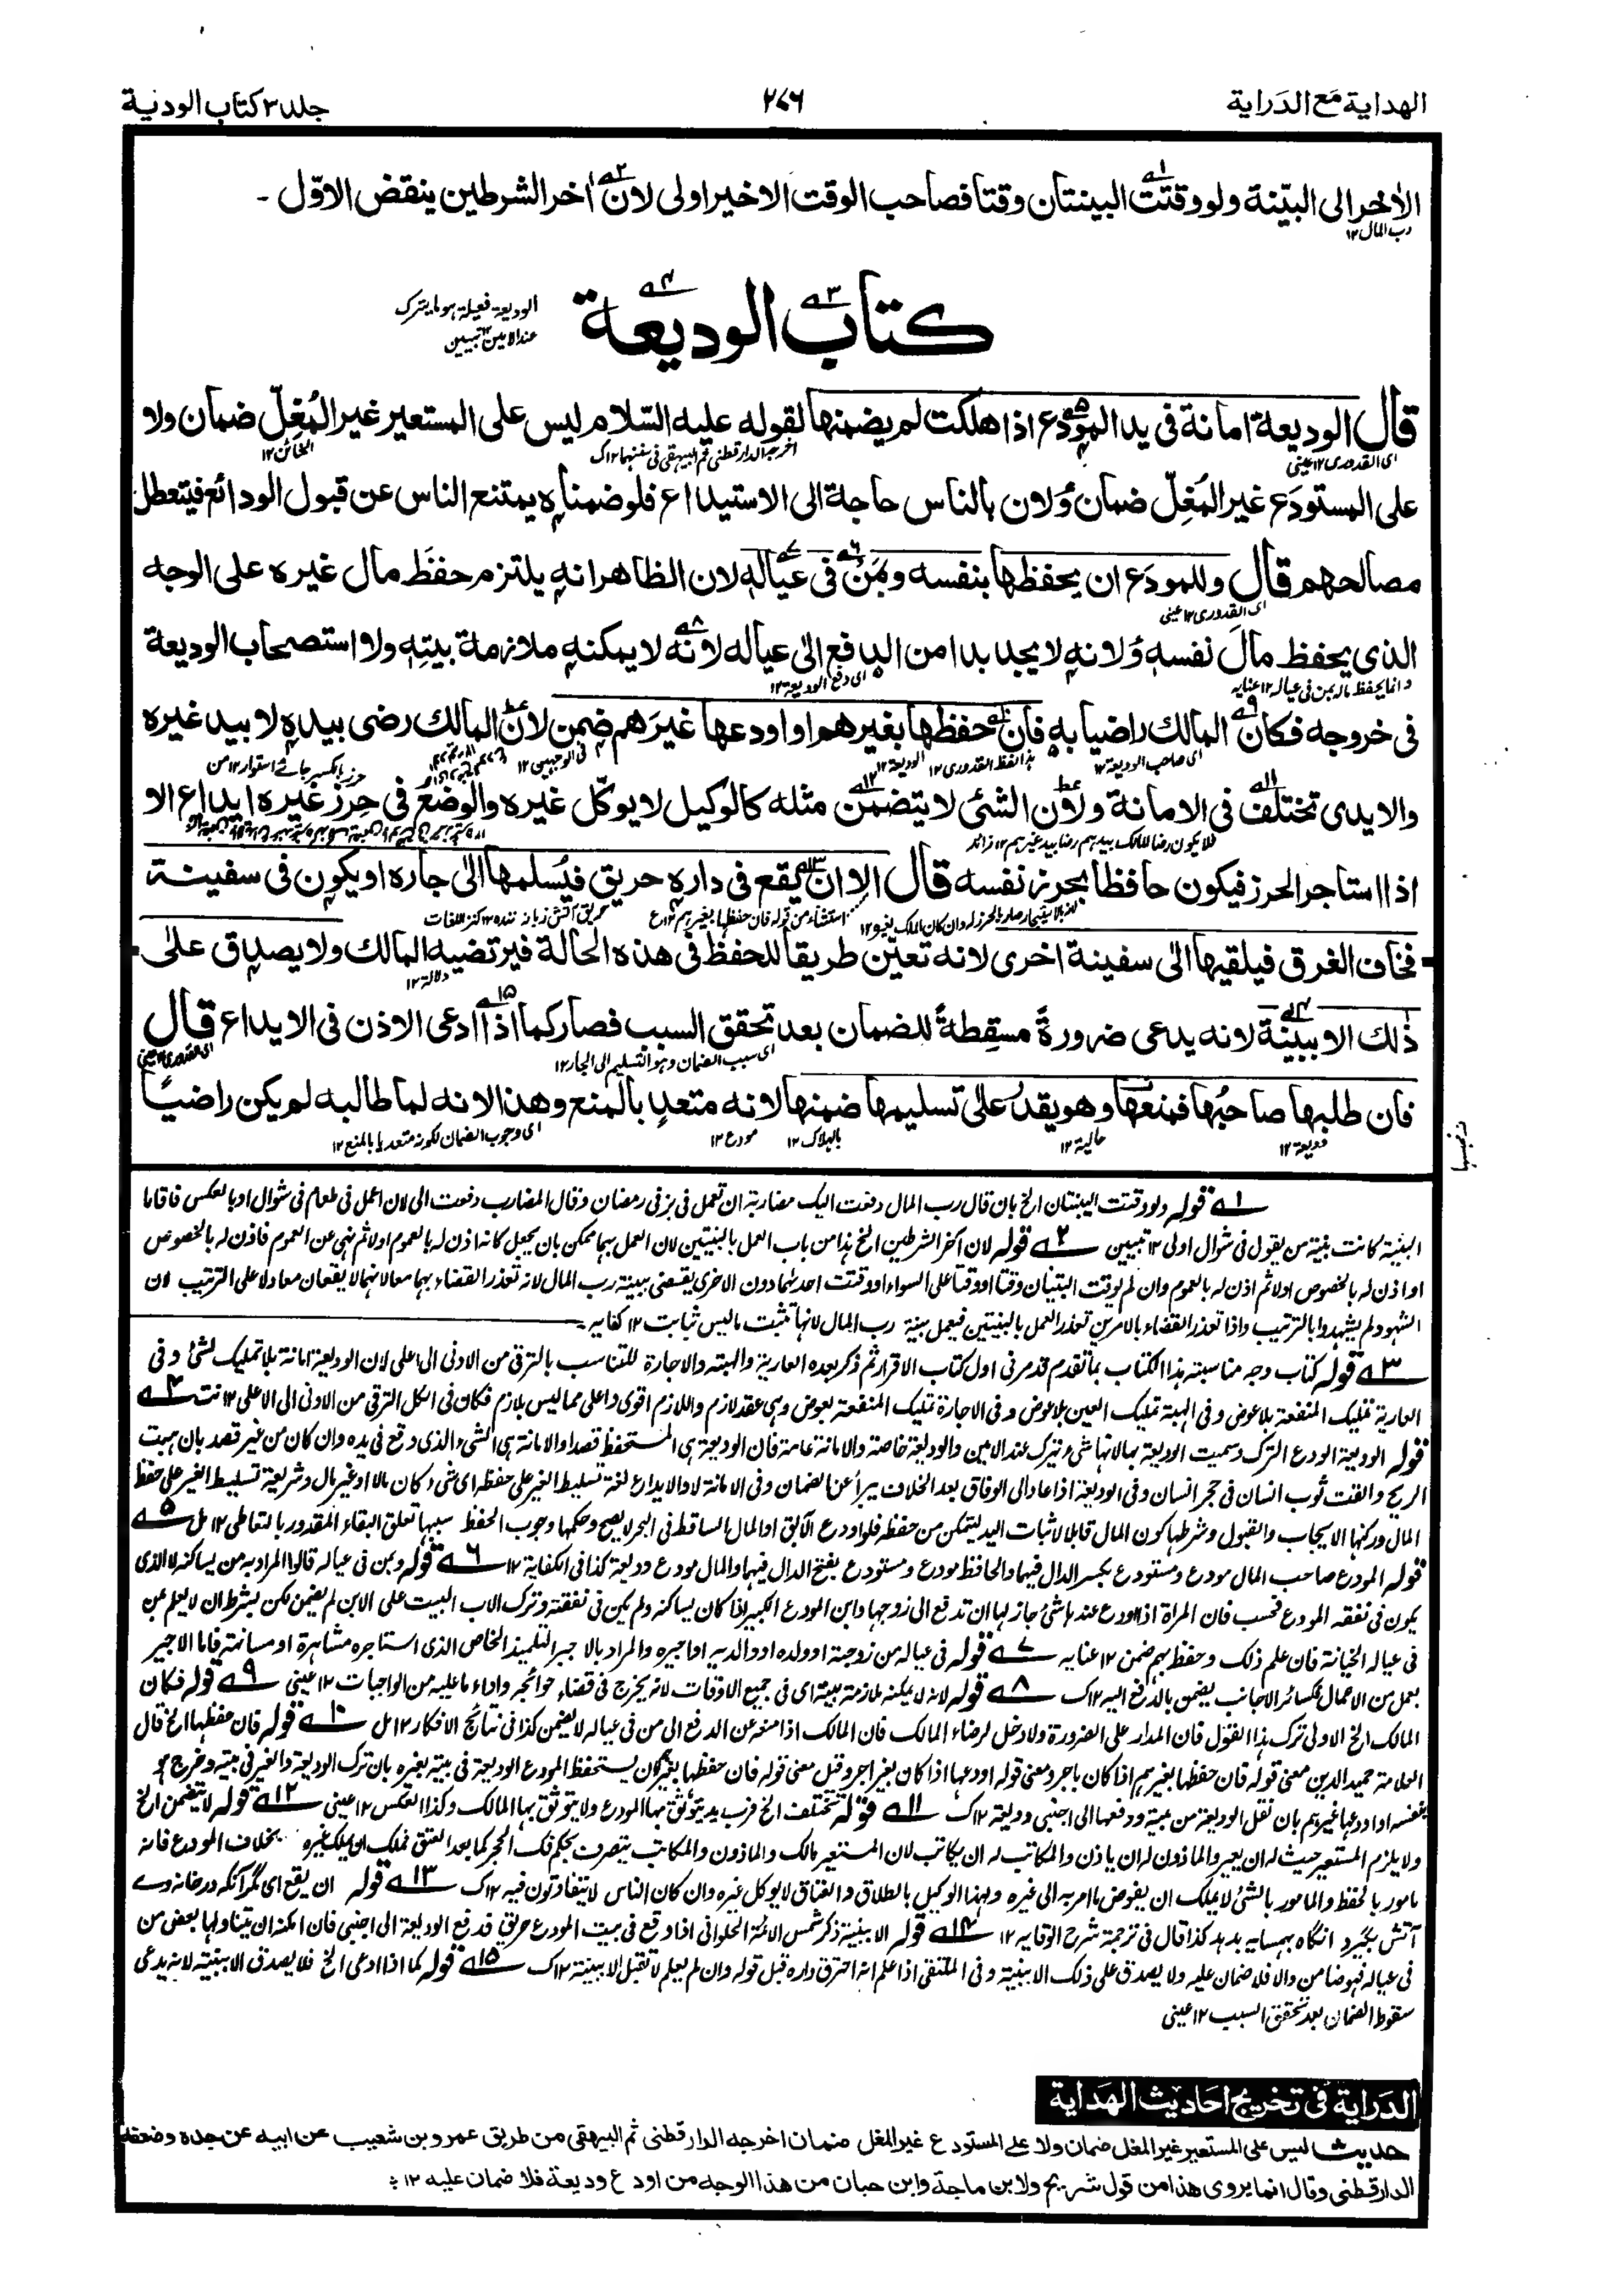 الهداية مع الدراية
٢٧٦
جلد ٣ كتاب الوديعة
الاٰخر الى البيّنة ولو وقتت البينتان وقتا فصاحب الوقت الاخير اولى لان اٰخر الشرطين ينقض الاوّل -
رب المال ١٢
كتاب الوديعة
الوديعة فعيلة هو ما يترك
عند الامين ١٢ تبيين
قال الوديعة امانة فى يد المودَع اذا هلكت لم يضمنها لقوله عليه السّلام ليس على المستعير غير المُغِلّ ضمان ولا
اى القدورى ١٢ عينى
اخرجه الدارقطنى ثم البيهقى فى سننهما ١٢ ك
الخائن ١٢
على المستودَع غير المُغِلّ ضمان وَلان بالناس حاجة الى الاستيداع فلو ضمناه يمتنع الناس عن قبول الودائع فيتعطل
مصالحهم قال وللمودَع ان يحفظها بنفسه وبمَن فى عياله لان الظاهر انه يلتزم حفظ مال غيره على الوجه
اى القدورى ١٢ عينى
الذى يحفظ مالَ نفسه وَلانه لا يجد بدا من الدفع الى عياله لانه لا يمكنه ملازمة بيتِه ولا استصحاب الوديعة
وانما يحفظ ماله بمن فى عياله ١٢ عنايه
اى دفع الوديعة ١٢
فى خروجه فكان المالك راضيا به فان حفظها بغيرهم او اودعها غيرَهم ضمن لان المالك رضى بيده لا بيد غيره
اى صاحب الوديعة ١٢
هذا لفظ القدورى ١٢
الوديعة ١٢
فى الوجهين ١٢
حرز بالكسر جائے استوار ١٢ من
والايدى تختلف فى الامانة ولان الشئ لا يتضمن مثله كالوكيل لا يوكّل غيره والوضع فى حِرز غيره ايداع الا
فلا يكون رضا المالك بيدهم رضا بيد غيرهم ١٢ زائد
اذا استاجر الحرز فيكون حافظا بحرز نفسه قال الا ان يقع فى داره حريق فيُسلمها الى جاره او يكون فى سفينة
استثناء من قوله فان حفظها بغيرهم ١٢ ع
فخاف الغرق فيلقيها الى سفينة اخرى لانه تعيّن طريقا للحفظ فى هذه الحالة فيرتضيه المالك ولا يصدق على
دلالة ١٢
ذٰلك الا ببينة لانه يدعى ضرورةً مسقِطةً للضمان بعد تحقق السبب فصار كما اذا ادعى الاذن فى الايداع قال
اى سبب الضمان وهو التسليم الى الجار ١٢
اى القدورى ١٢ عينى
فان طلبها صاحبُها فمنعها وهو يقدر على تسليمها ضمنها لانه متعدٍ بالمنع وهذا لانه لما طالبه لم يكن راضيًا
وديعة ١٢
حالية ١٢
بالهلاك ١٢
مودع ١٢
اى وجوب الضمان لكونه متعديا بالمنع ١٢
١ قوله ولو وقتت البينتان الخ بان قال رب المال دفعت اليك مضاربة ان تعمل فى بز فى رمضان وقال المضارب دفعت الى لان اعمل فى طعام فى شوال او بالعكس فاقاما
البينة كانت بينة من يقول فى شوال اولى ١٢ تبيين ٢ قوله لان آخر الشرطين الخ هذا من باب العمل بالبينتين لان العمل بهما ممكن بان يجعل كانه اذن له بالعموم اولا ثم نهى عن العموم فاذن له بالخصوص
او اذن له بالخصوص اولا ثم اذن له بالعموم وان لم توقت البينتان وقتا او وقتا على السواء او وقتت احدٰهما دون الاخرى يقضى ببينة رب المال لانه تعذر القضاء بهما معا لانهما لا يقعان معا ولا على الترتيب لان
الشهود لم يشهدوا بالترتيب واذا تعذر القضاء بالامرين تعذر العمل بالبينتين فيعمل ببينة رب المال لانها تثبت ما ليس ثابت ١٢ كفايه -
٣ قوله كتاب وجه مناسبة هذا الكتاب بما تقدم قد مر فى اول كتاب الاقرار ثم ذكر بعده العارية والهبة والاجارة للتناسب بالترقى من الادنى الى الاعلى لان الوديعة امانة بلا تمليك لشئ وفى
العارية تمليك المنفعة بلا عوض وفى الهبة تمليك العين بلا عوض وفى الاجارة تمليك المنفعة بعوض وهى عقد لازم واللازم اقوى واعلى مما ليس بلازم فكان فى الكل الترقى من الادنى الى الاعلى ١٢ نت ٤
قوله الوديعة الودع الترك وسميت الوديعة بها لانها شئ يترك عند الامين والوديعة خاصة والامانة عامة فان الوديعة هى المستحفظ قصدا والامانة هى الشئ الذى وقع فى يده وان كان من غير قصد بان هبت
الريح والقت ثوب انسان فى حجر انسان وفى الوديعة اذا عاد الى الوفاق بعد الخلاف يبرأ عن الضمان وفى الامانة لا والايداع لغة تسليط الغير على حفظ اى شئ كان مالا او غير مال وشريعة تسليط الغير على حفظ
المال وركنها الايجاب والقبول وشرطها كون المال قابلا لاثبات اليد ليتمكن من حفظه فلو اودع الآبق او المال الساقط فى البحر لا يصح وحكمها وجوب الحفظ سببها تعلق البقاء المقدور بالتعاطى ١٢ مل ٥
قوله المودع صاحب المال مودع ومستودع بكسر الدال فيهما والحافظ مودع ومستودع بفتح الدال فيهما والمال مودع ووديعة كذا فى الكفاية ١٢ ٦ قوله وبمن فى عياله قالوا المراد به من يساكنه لا الذى
يكون فى نفقة المودع فحسب فان المراة اذا اودع عندها شئ جاز لها ان تدفع الى زوجها وابن المودع الكبير اذا كان يساكنه ولم يكن فى نفقته وترك الاب البيت على الابن لم يضمن لكن بشرط ان لا يعلم عن
فى عياله الخيانة فان علم ذلك وحفظ بهم ضمن ١٢ عنايه ٧ قوله فى عياله من زوجته او ولده او والديه او اجيره والمراد بالاجير التلميذ الخاص الذى استاجره مشاهرة او مسانهة فاما الاجير
بعمل من الاعمال فكسائر الاجانب يضمن بالدفع اليه ١٢ ك ٨ قوله لانه لا يمكنه ملازمة بيته اى فى جميع الاوقات لانه يخرج فى قضاء حوائجه واداء ما عليه من الواجبات ١٢ عينى ٩ قوله فكان
المالك الخ الاولى ترك هذا القول فان المدار على الضرورة ولا دخل لرضاء المالك فان المالك اذا منعه عن الدفع الى من فى عياله لا يضمن كذا فى نتائج الافكار ١٢ مل ١٠ قوله فان حفظها الخ قال
العلامة حميد الدين معنى قوله فان حفظها بغيرهم اذا كان باجر ومعنى قوله اودعها اذا كان بغير اجر وقيل معنى قوله فان حفظها بغيرهم كان يستحفظ المودع الوديعة فى بيته بغيره بان ترك الوديعة والغير فى بيته وخرج هو
بنفسه او اودعها غيرهم بان نقل الوديعة من بيته ودفعها الى اجنبى وديعة ١٢ ك ١١ قوله تختلف الخ فرب يد يتوثق بها المودع ولا يتوثق بها المالك وكذا العكس ١٢ عينى ١٢ قوله لا يتضمن الخ
ولا يلزم المستعير حيث له ان يعير والماذون له ان ياذن والمكاتب له ان يكاتب لان المستعير مالك والماذون والمكاتب يتصرف بحكم فك الحجر كما بعد العتق فملك ان يملك غيره بخلاف المودع فانه
مامور بالحفظ والمامور بالشئ لا يملك ان يفوض ما امر به الى غيره ولهذا الوكيل بالطلاق والعتاق لا يوكل غيره وان كان الناس لا يتفاوتون فيه ١٢ ك ١٣ قوله ان يقع اى مگر آنكه در خانه وے
آتش بگيرد آنگاه بهمسايه بدهد كذا قال فى ترجمة شرح الوقاية ١٢ ١٤ قوله الا ببينة ذكر شمس الائمة الحلوانى اذا وقع فى بيت المودع حريق قد فع الوديعة الى اجنبى فان امكنه ان يتناولها بعض من
فى عياله فهو ضامن والا فلا ضمان عليه ولا يصدق على ذلك الا ببينة وفى المنتقى اذا علم انه احترق داره قبل قوله وان لم يعلم لا تقبل الا ببينة ١٢ ك ١٥ قوله كما اذا ادعى الخ فلا يصدق الا ببينة لانه يدعى
سقوط الضمان بعد تحقق السبب ١٢ عينى
الدراية فى تخريج احاديث الهداية
حديث ليس على المستعير غير المغل ضمان ولا على المستودع غير المغل ضمان اخرجه الدارقطنى ثم البيهقى من طريق عمرو بن شعيب عن ابيه عن جده وضعفه
الدارقطنى وقال انما يروى هذا من قول شريح ولابن ماجة وابن حبان من هذا الوجه من اودع وديعة فلا ضمان عليه ١٢